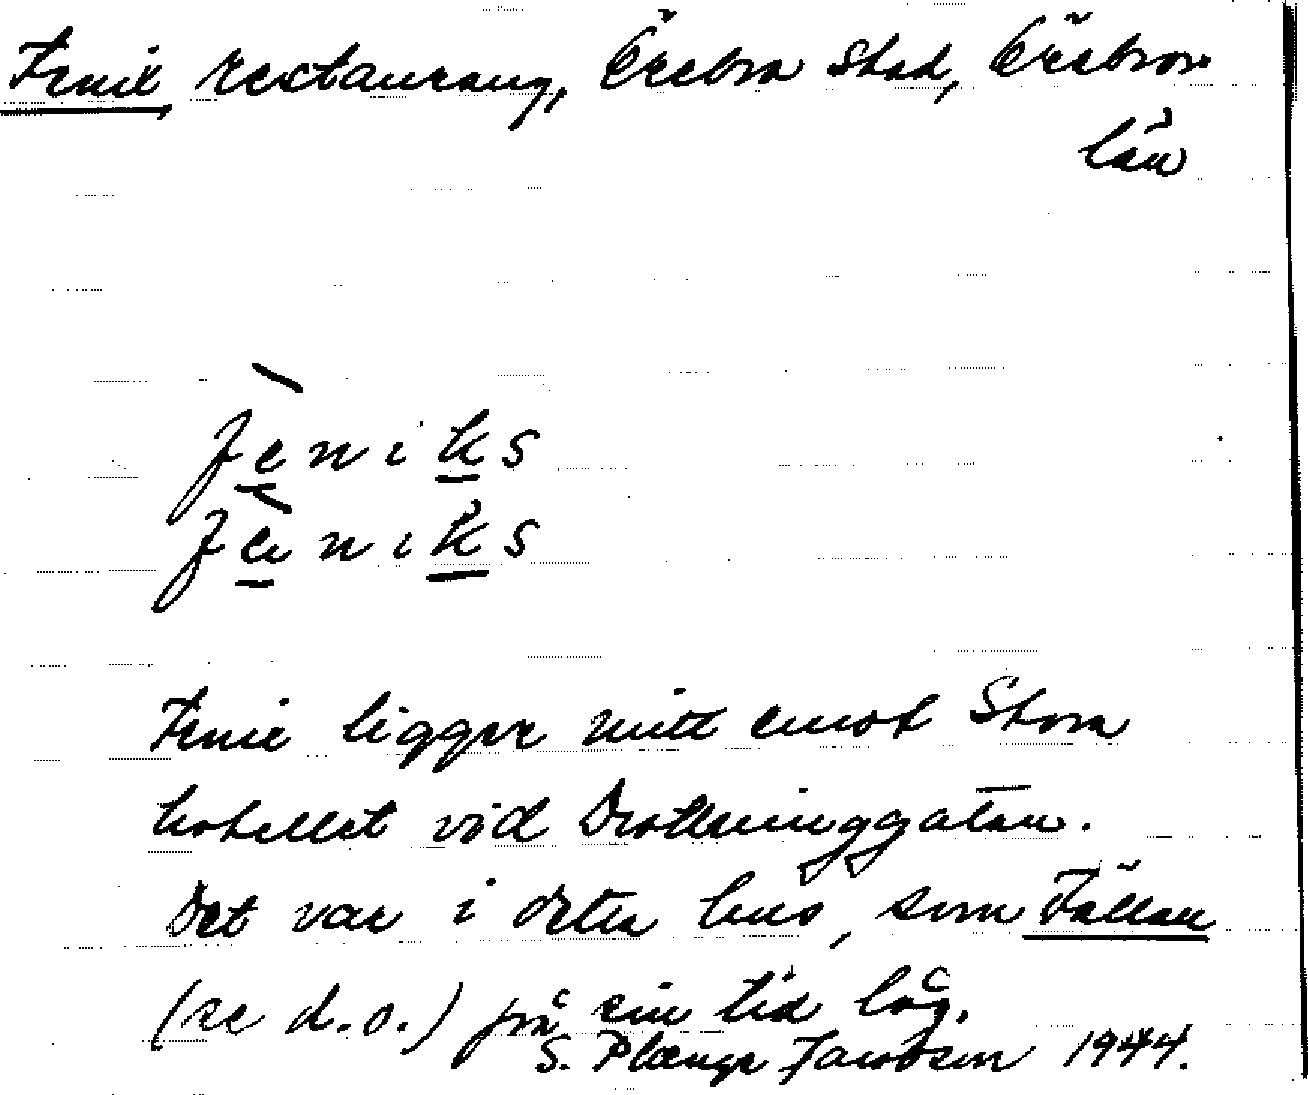 Fenix, restaurang, Örebro stad, Örebro
län
fèniks
fèniks
Fenix ligger mitt emot Stora
hotellet vid Drottninggatan.
Det var i detta hus, som Fällan
(se d.o.) på sin tid låg.
S. Plænge Jacobson 1944.